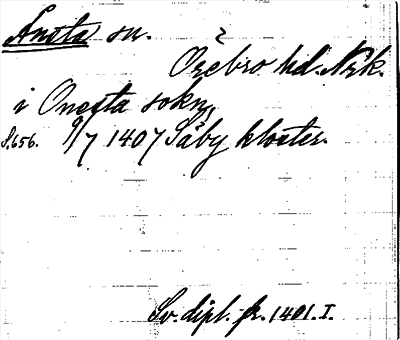 Ansta sn.
Örebro hd. Nrk.
i Onesta sokn,
S. 656. 9/7 1407 Säby kloster.
Sv. dipl. fr. 1401. I.